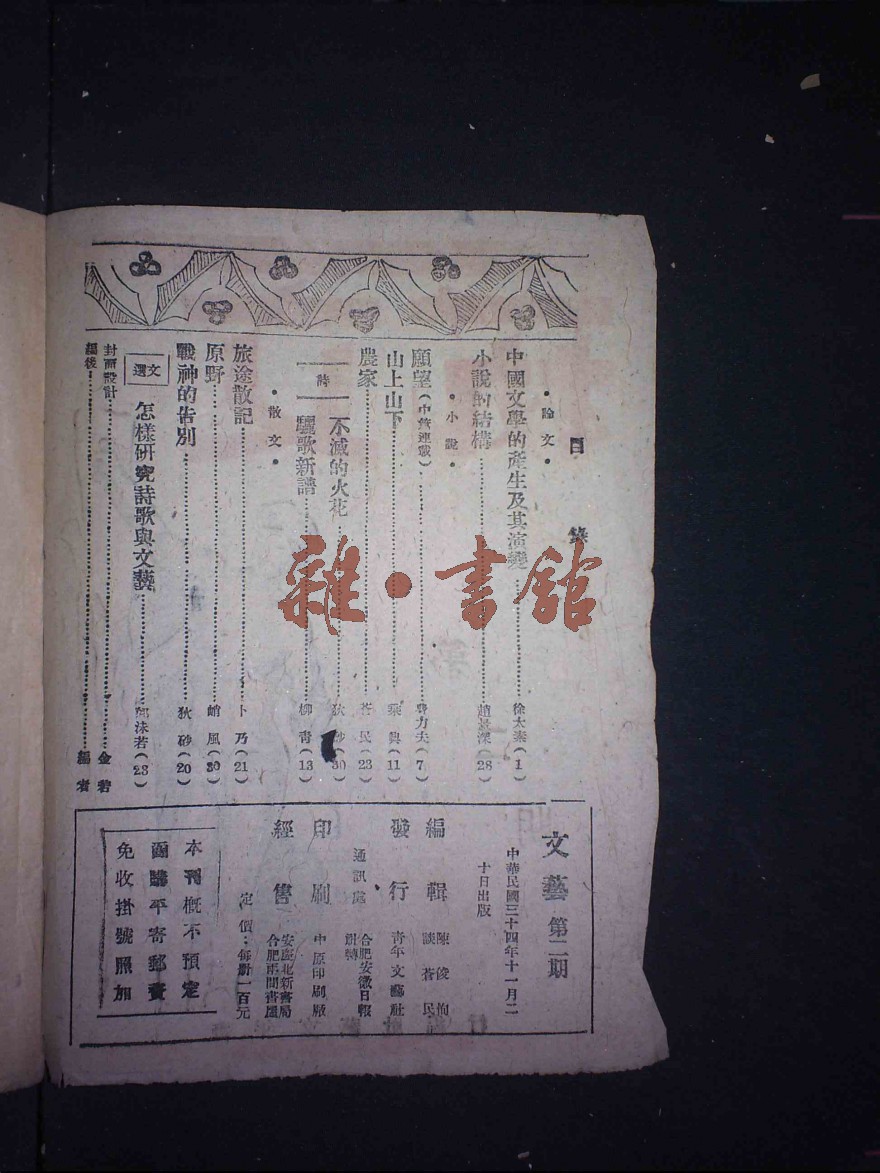 目錄
•論文•
中國文學的產生及其演變 徐太素(1)
小說的結構 趙景深(28)
•小說•
願望(中篇連載) 力夫(7)
山上山下 (11)
農家 蒼民(23)
詩
不滅的火花 狄砂(30)
驪歌新譜 柳青(13)
•散文•
旅途散記 卜乃(21)
原野 風(30)
戰神的告別 狄砂(20)
文選
怎樣研究詩歌與文藝 郭沫若(23)
封面設計 金若
編後 編者
文藝 第二期
中華民國三十四年十一月二
十日出版
編輯 陳俊
談蒼民
發行 青年文藝社
通訊處 合肥安徽日報
謝轉
印刷 中原印刷廠
經售 安慶北新書局
合肥書店
定價:每冊一百元
本刊概不預定
函購平寄郵費
免收掛號照加
雜•書館